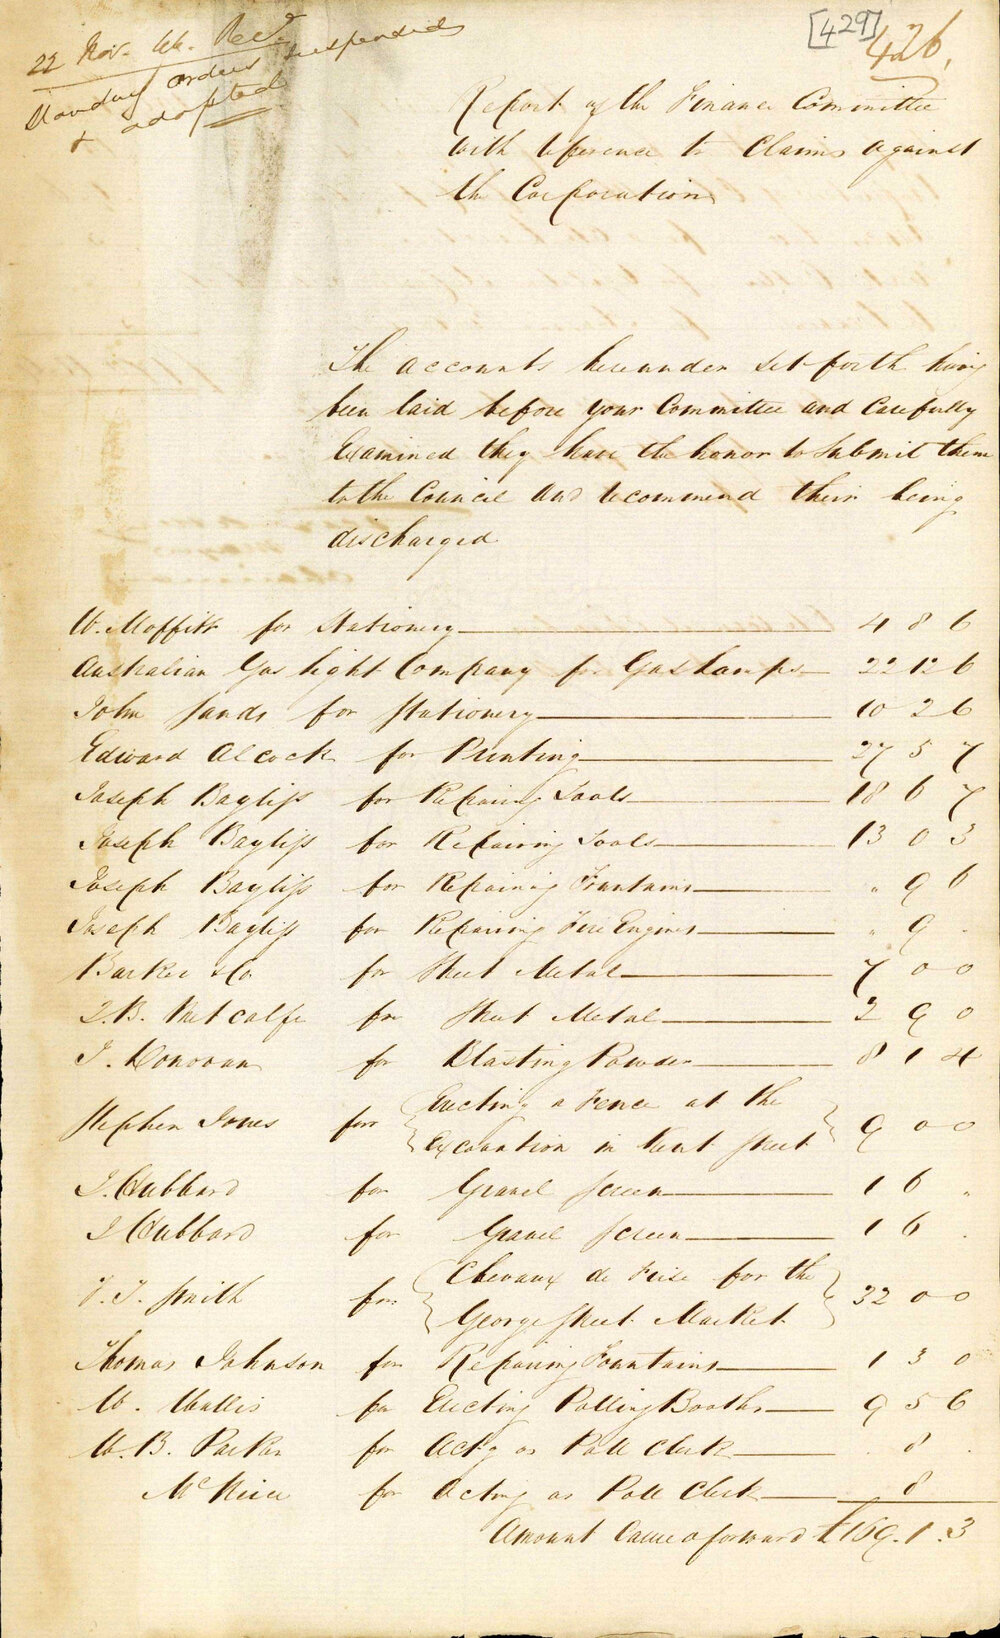 [429]
426.
22 Nov. 44. Recd
Standing orders suspended
& adopted
Report of the Finance Committee
with reference to Claims against
the Corporation
The accounts hereunder set forth having
been laid before your Committee and Carefully
Examined they have the honor to Submit them
to the Council and recommend their being
discharged
W. Moffitt for Stationery 4 8 6
Australian Gas light Company for Gas Lamps 22 12 6
John Sands for Stationery 10 2 6
Edward Alcock for Printing 27 5 7
Joseph Bayliss for Repairing Tools 18 6 7
Joseph Bayliss for Repairing Tools 13 0 3
Joseph Bayliss for Repairing Fountains " 9 6
Joseph Bayliss for Repairing Fire Engines " 9 .
Barker & Co for Sheet Metal 7 0 0
J.B. Metcalfe for Sheet Metal 2 9 0
J. Donovan for Blasting Powder 8 1 4
Stephen Jones for { Erecting a Fence at the
Excavation in Kent Street } 9 0 0
J. Hubbard for Gravel Screen 1 6 "
J Hubbard for Gravel Screen 1 6 .
T. Smith for { Chevaux de Frise for the
George Street Market } 32 0 0
Thomas Johnson for Repairing Fountains 1 3 0
W. Wallis for Erecting Polling Booths 9 5 6
W. B. Parker for Actg as Poll Clerk . 8 .
Mc for Acting as Poll Clerk 8
Amount Carried forward £169.1.3